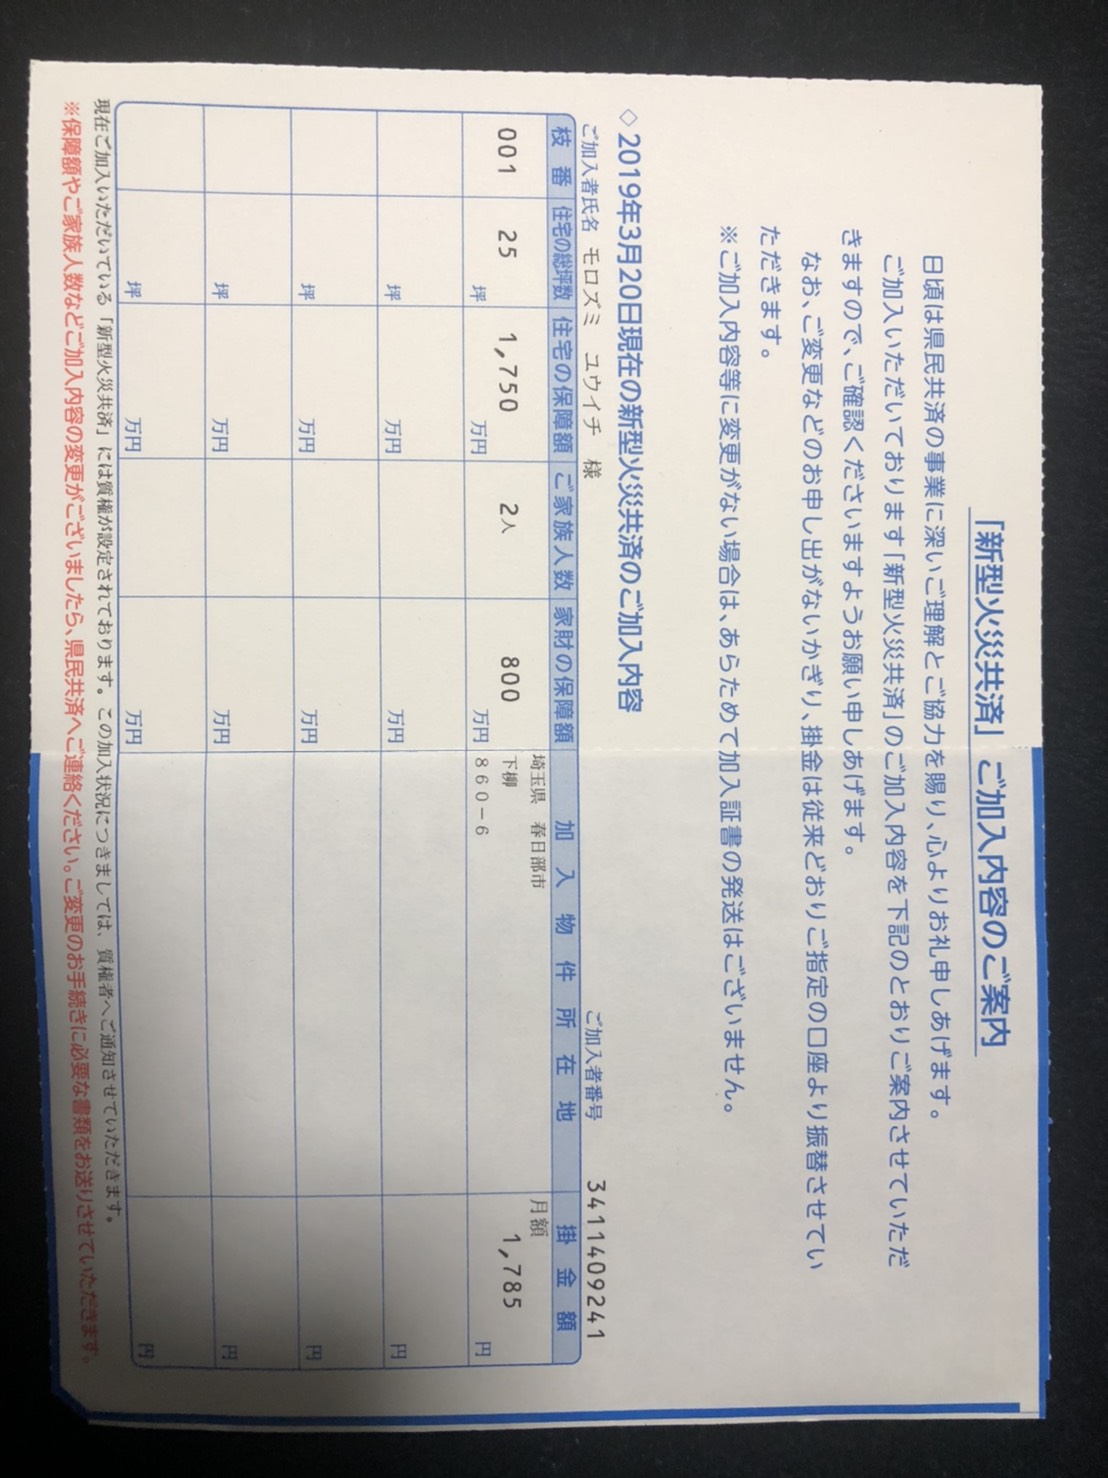 「新型火災共済」ご加入内容のご案内
日頃は県民共済の事業に深いご理解とご協力を賜り、心よりお礼申しあげます。
ご加入いただいております「新型火災共済」のご加入内容を下記のとおりご案内させていただ
きますので、ご確認くださいますようお願い申しあげます。
なお、ご変更などのお申し出がないかぎり、掛金は従来どおりご指定の口座より振替させてい
ただきます。
※ご加入内容等に変更がない場合は、あらためて加入証書の発送はございません。
◇2019年3月20日現在の新型火災共済のご加入内容
ご加入者氏名 モロズミ ユウイチ 様 ご加入者番号 3411409241
枝番 住宅の総坪数 住宅の保障額 ご家族人数 家財の保障額 加入物件所在地 掛金額
埼玉県 春日部市 月額
001 25 1,750 2人 800 下柳 1,785
坪 万円 万円 860-6 円
坪 万円 万円 円
坪 万円 万円 円
坪 万円 万円 円
坪 万円 万円 円
現在ご加入いただいている「新型火災共済」には質権が設定されております。この加入状況につきましては、質権者へご通知させていただきます。
※保障額やご家族人数などご加入内容の変更がございましたら、県民共済へご連絡ください。ご変更のお手続きに必要な書類をお送りさせていただきます。